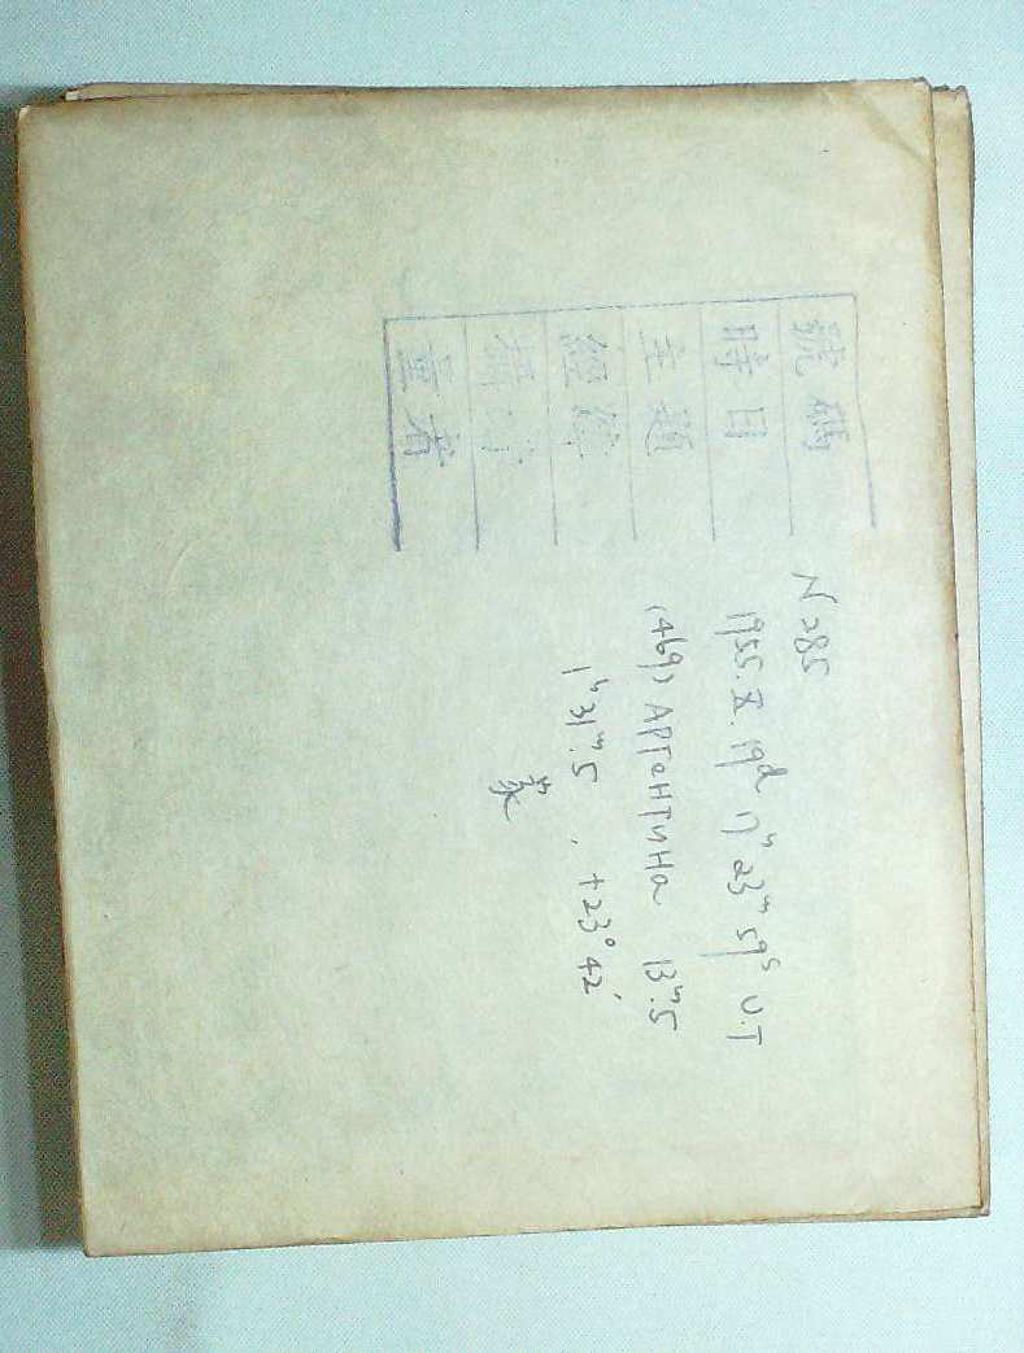 號碼 N285
時日 1955.X.19d 17h 23m 59s U.T
主題 (469) АРГЕНТИНА 13m.5
經緯 1h 31m.5 , +23° 42'
攝
量者